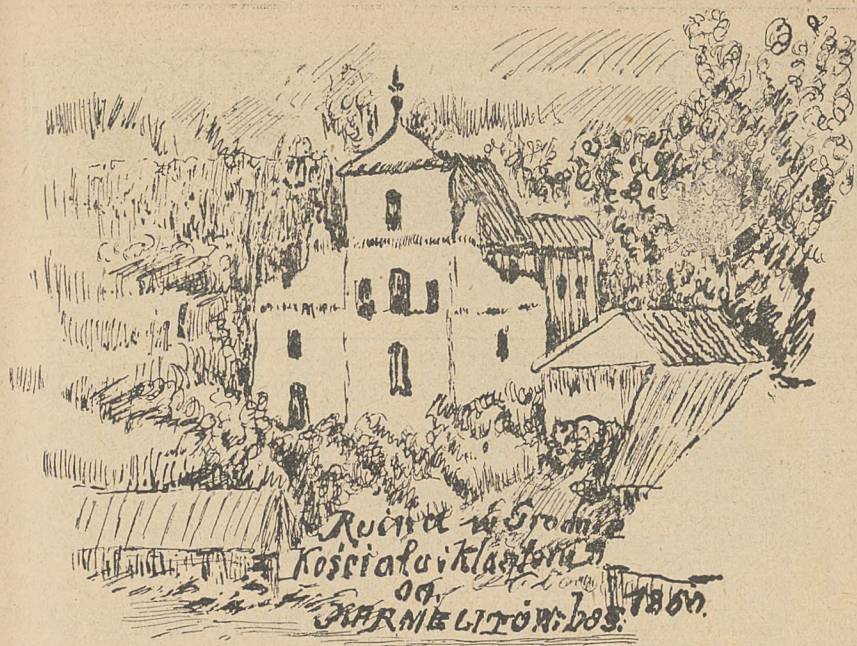 Ruina w Grodnie
Kościoła i Klasztoru
OO.
KARMELITÓW: bos: 1860.